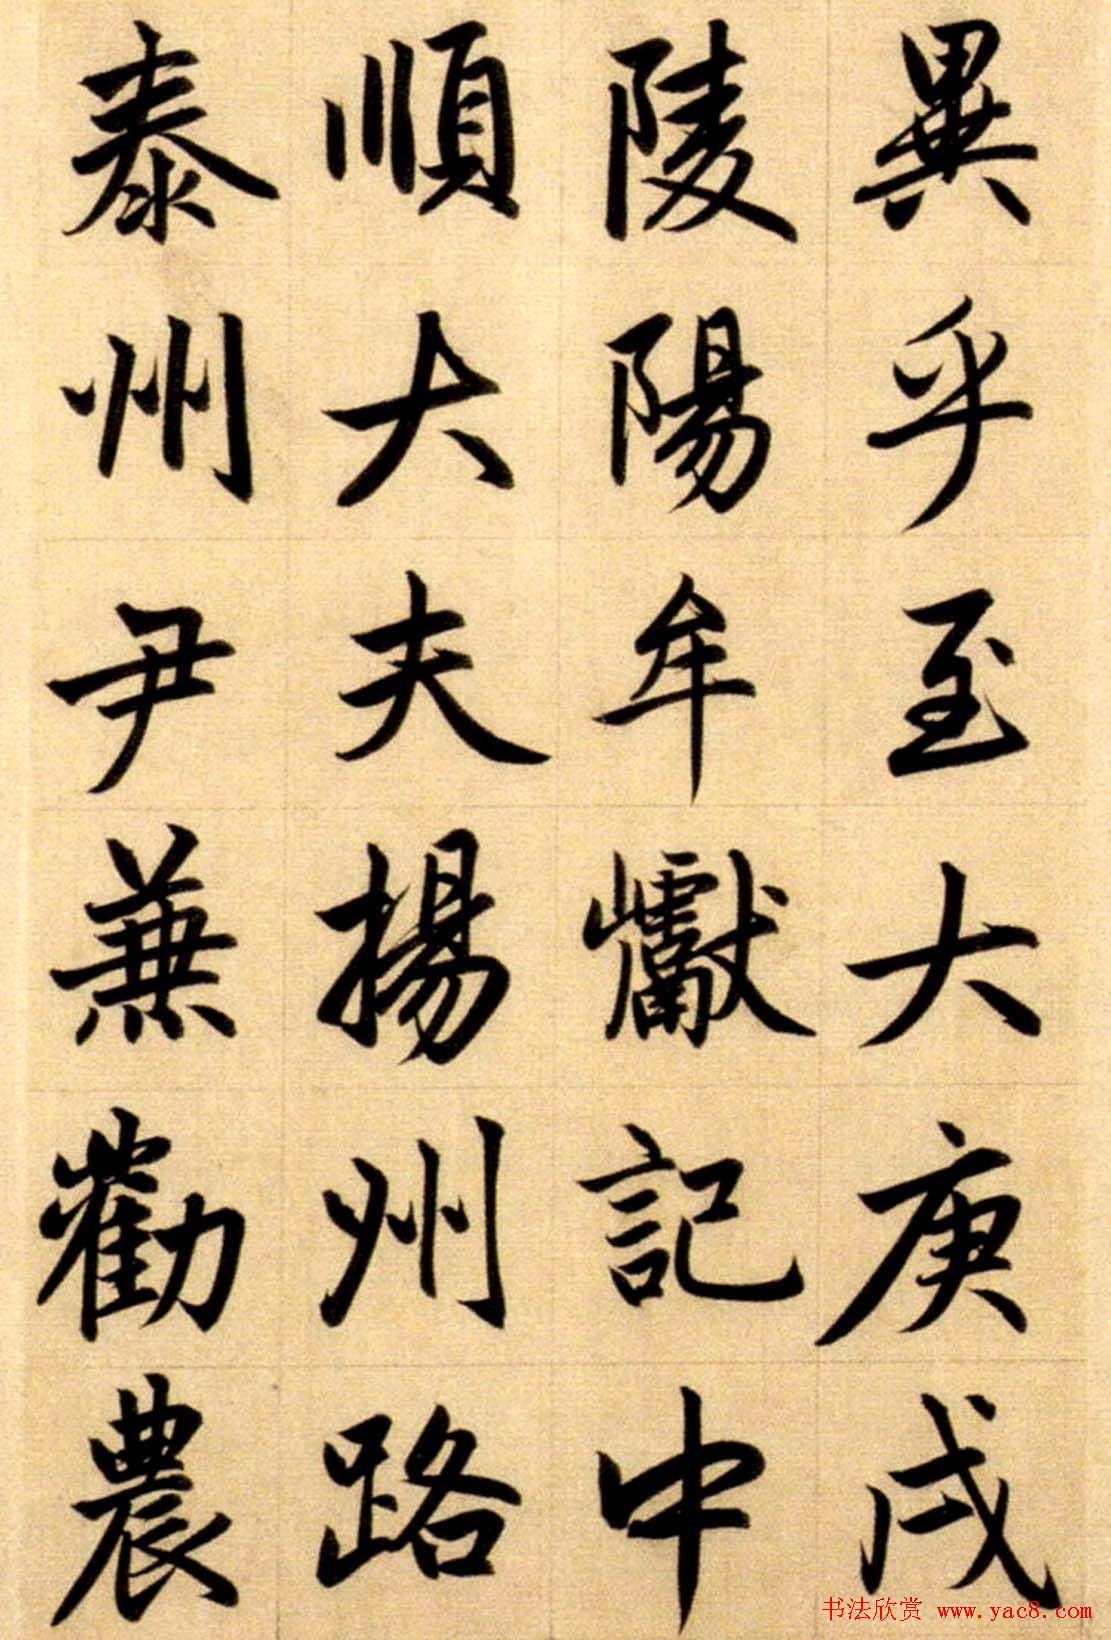 異乎至大庚戌
陵陽牟巘記中
順大夫揚州路
泰州尹兼勸農
书法欣赏 www.yac8.com